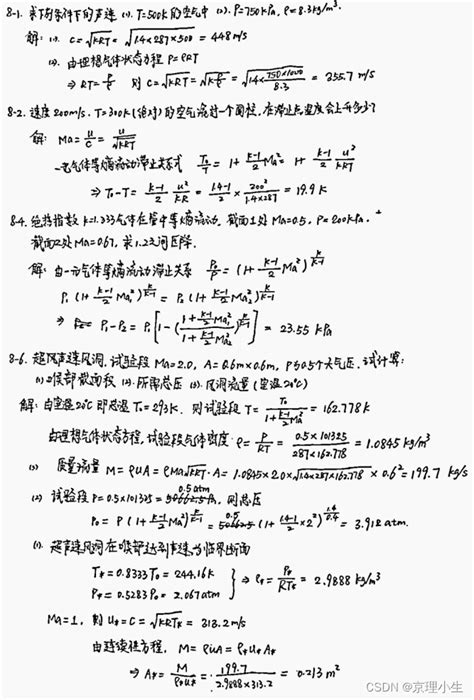 8-1. 求下列条件下的声速 (1). T=500K的空气中 (2). P=750kPa, ρ=8.3kg/m³.
解: (1). C=√kRT=√1.4×287×500 = 448m/s
(2). 由理想气体状态方程 P=ρRT
⇒ RT=P/ρ 则 C=√kRT=√k P/ρ=√1.4×750×1000/8.3 = 355.7 m/s
8-2. 速度200m/s. T=300k(绝对)的空气流过一个圆柱, 在滞止点温度会上升多少?
解: Ma=u/c=u/√kRT
一元气体等熵流动滞止关系式 T₀/T=1+(k-1)/2 Ma²=1+(k-1)/2 u²/kRT
⇒ T₀-T=(k-1)/2 u²/kR=(1.4-1)/2×200²/1.4×287=19.9 K
8-4. 绝热指数 k=1.333气体在管中等熵流动, 截面1处Ma=0.5, P=200kPa.
截面2处Ma=0.67, 求1.2之间压降.
解: 由一元气体等熵流动滞止关系 P₀/P=(1+(k-1)/2 Ma²)^(k/(k-1))
P₁(1+(k-1)/2 Ma₁²)^(k/(k-1))=P₂(1+(k-1)/2 Ma₂²)^(k/(k-1))
⇒ P₁-P₂=P₁[1-((1+(k-1)/2 Ma₁²)/(1+(k-1)/2 Ma₂²))^(k/(k-1))] = 23.55 kPa
8-6. 超声速风洞, 试验段Ma=2.0, A=0.6m×0.6m, P为0.5个大气压, 试计算:
(1)喉部截面积 (2).所需总压 (3).风洞流量(室温20℃)
解: 由室温20℃即总温T₀=293K, 则试验段T=T₀/(1+(k-1)/2 Ma²)=162.778K
由理想气体状态方程, 试验段气体密度 ρ=P/RT=0.5×101325/287×162.778=1.0845kg/m³
(3) 质量流量 M=ρuA=ρMa√kRT·A=1.0845×2.0×√1.4×287×162.778×0.6²=199.7 kg/s
(2) 试验段P=0.5×101325=0.5atm, 则总压
P₀=P(1+(k-1)/2 Ma²)^(k/(k-1))=0.5(1+(1.4-1)/2×2²)^(1.4/0.4)=3.912 atm.
(1). 超声速风洞在喉部达到声速为临界断面
T*=0.8333T₀=244.16k
P*=0.5283P₀=2.067atm } ⇒ ρ*=P*/RT*=2.9888 kg/m³
Ma=1, 则u*=C=√kRT*=313.2m/s
由连续性方程, M=ρuA=ρ*u*A*
⇒ A*=M/ρ*u*=199.7/2.9888×313.2=0.213 m²
CSDN @京理小生